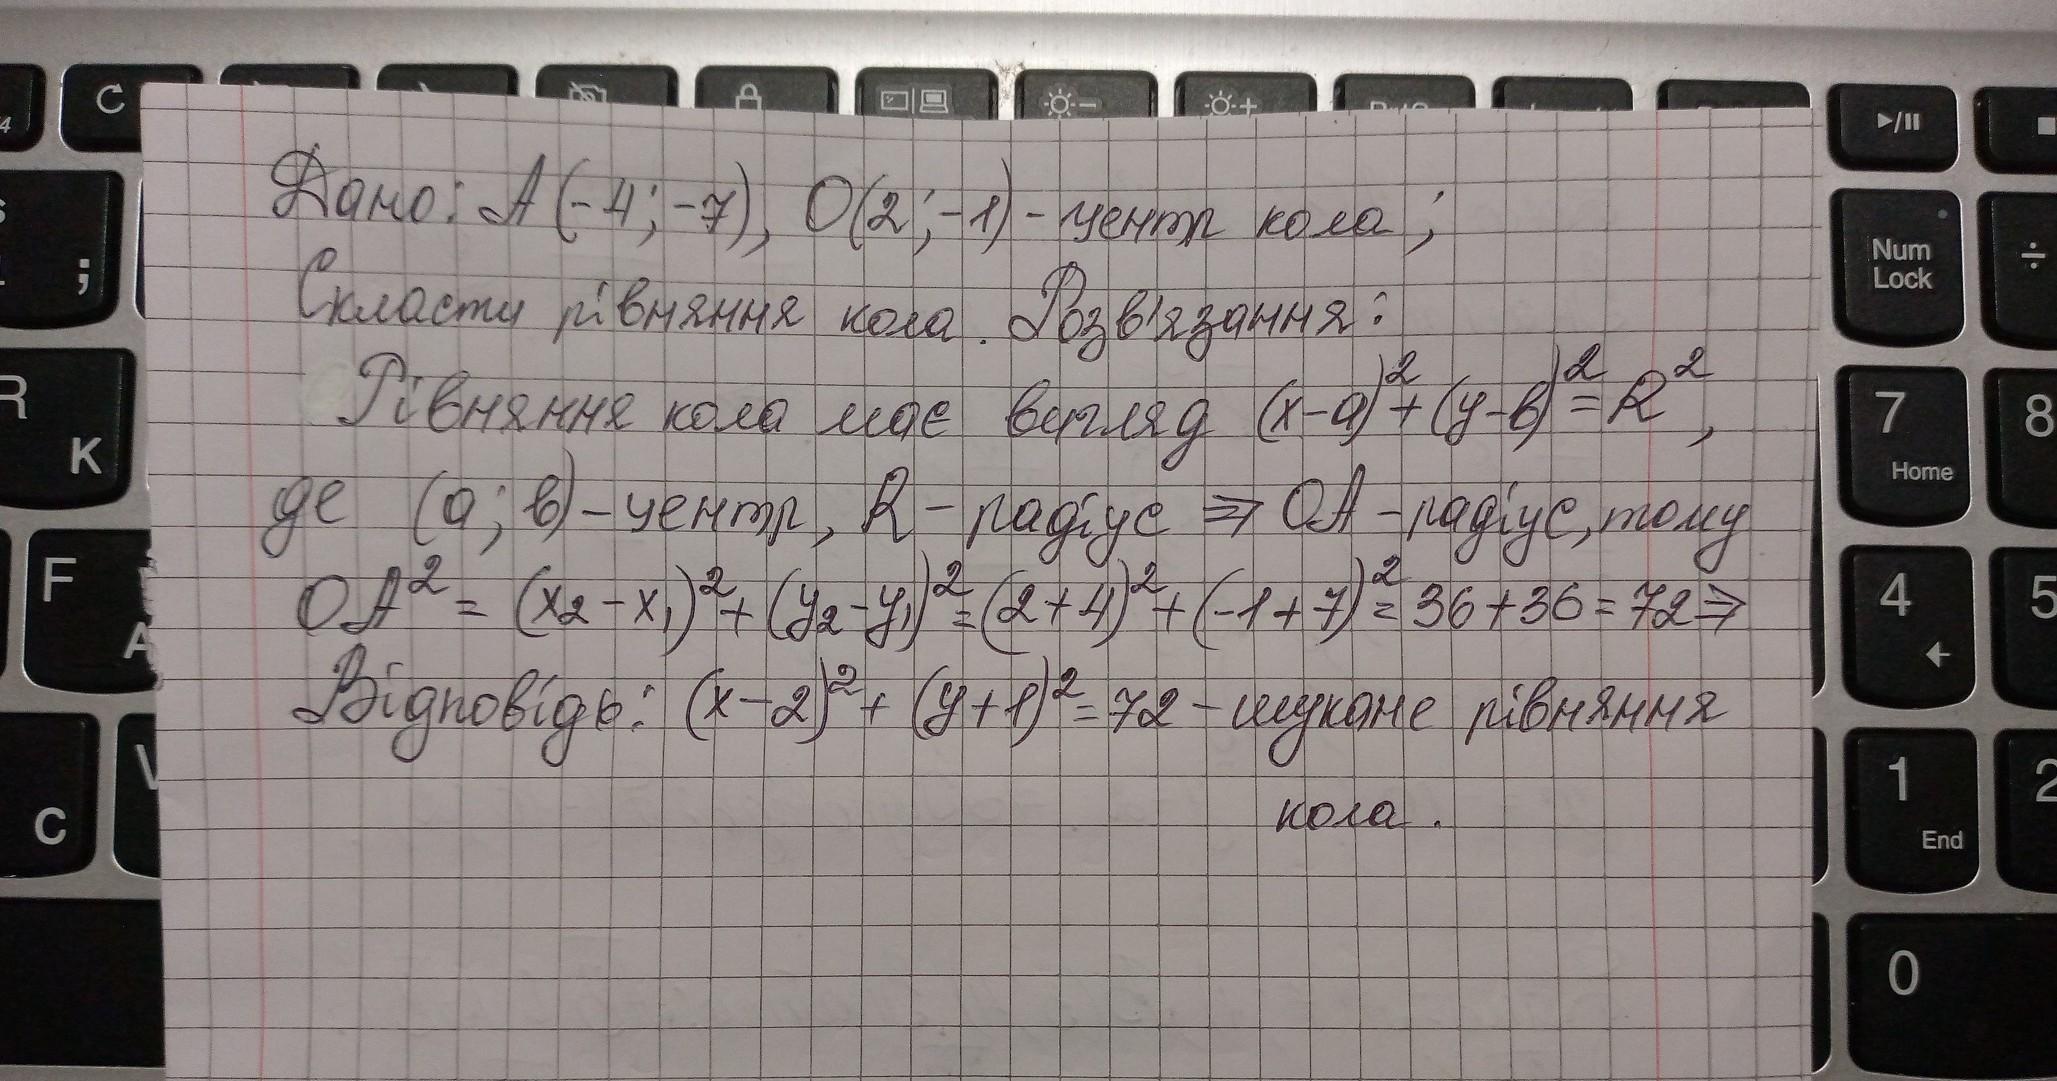 Дано: A(-4; -7), O(2; -1) - центр кола;
Скласти рівняння кола. Розв'язання:
Рівняння кола має вигляд (x-a)²+(y-b)²=R²,
де (a; b) - центр, R - радіус ⇒ OA - радіус, тому
OA² = (x₂-x₁)²+(y₂-y₁)²=(2+4)²+(-1+7)²=36+36=72⇒
Відповідь: (x-2)²+(y+1)²=72 - шукане рівняння
кола.
;
R
K
F
C
Num
Lock
÷
7
Home
8
4
5
1
End
2
0